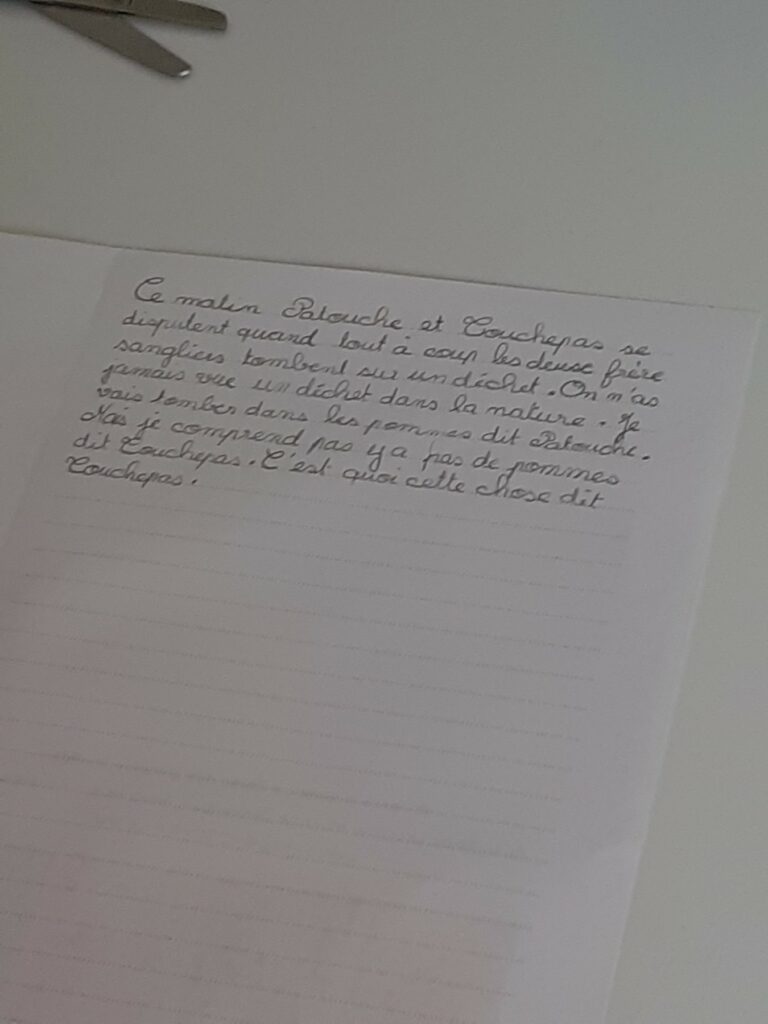 Ce matin Patouche et Touchepas se
disputent quand tout à coup les deuse frère
sangliers tombent sur un déchet. On n'as
jamais vue un déchet dans la nature. Je
vais tomber dans les pommes dit Patouche.
Mais je comprend pas y a pas de pommes
dit Touchepas. C'est quoi cette chose dit
Touchepas.